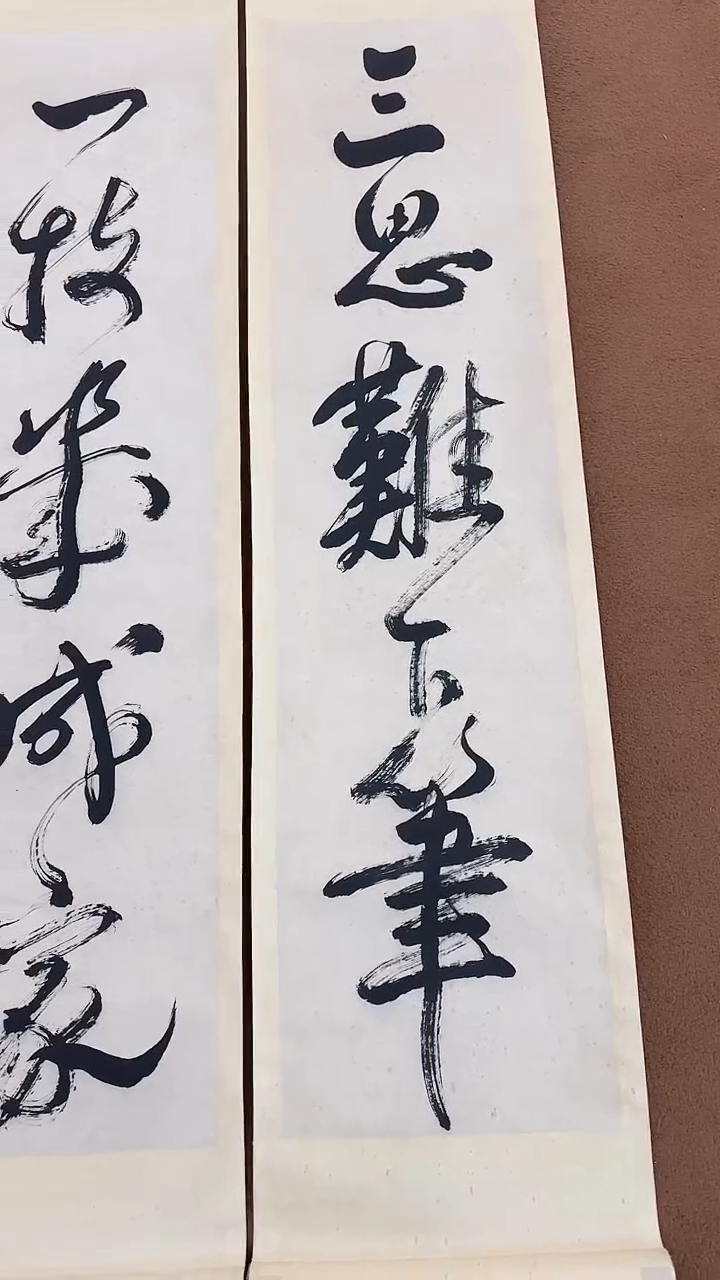 三思難下筆
一技成家